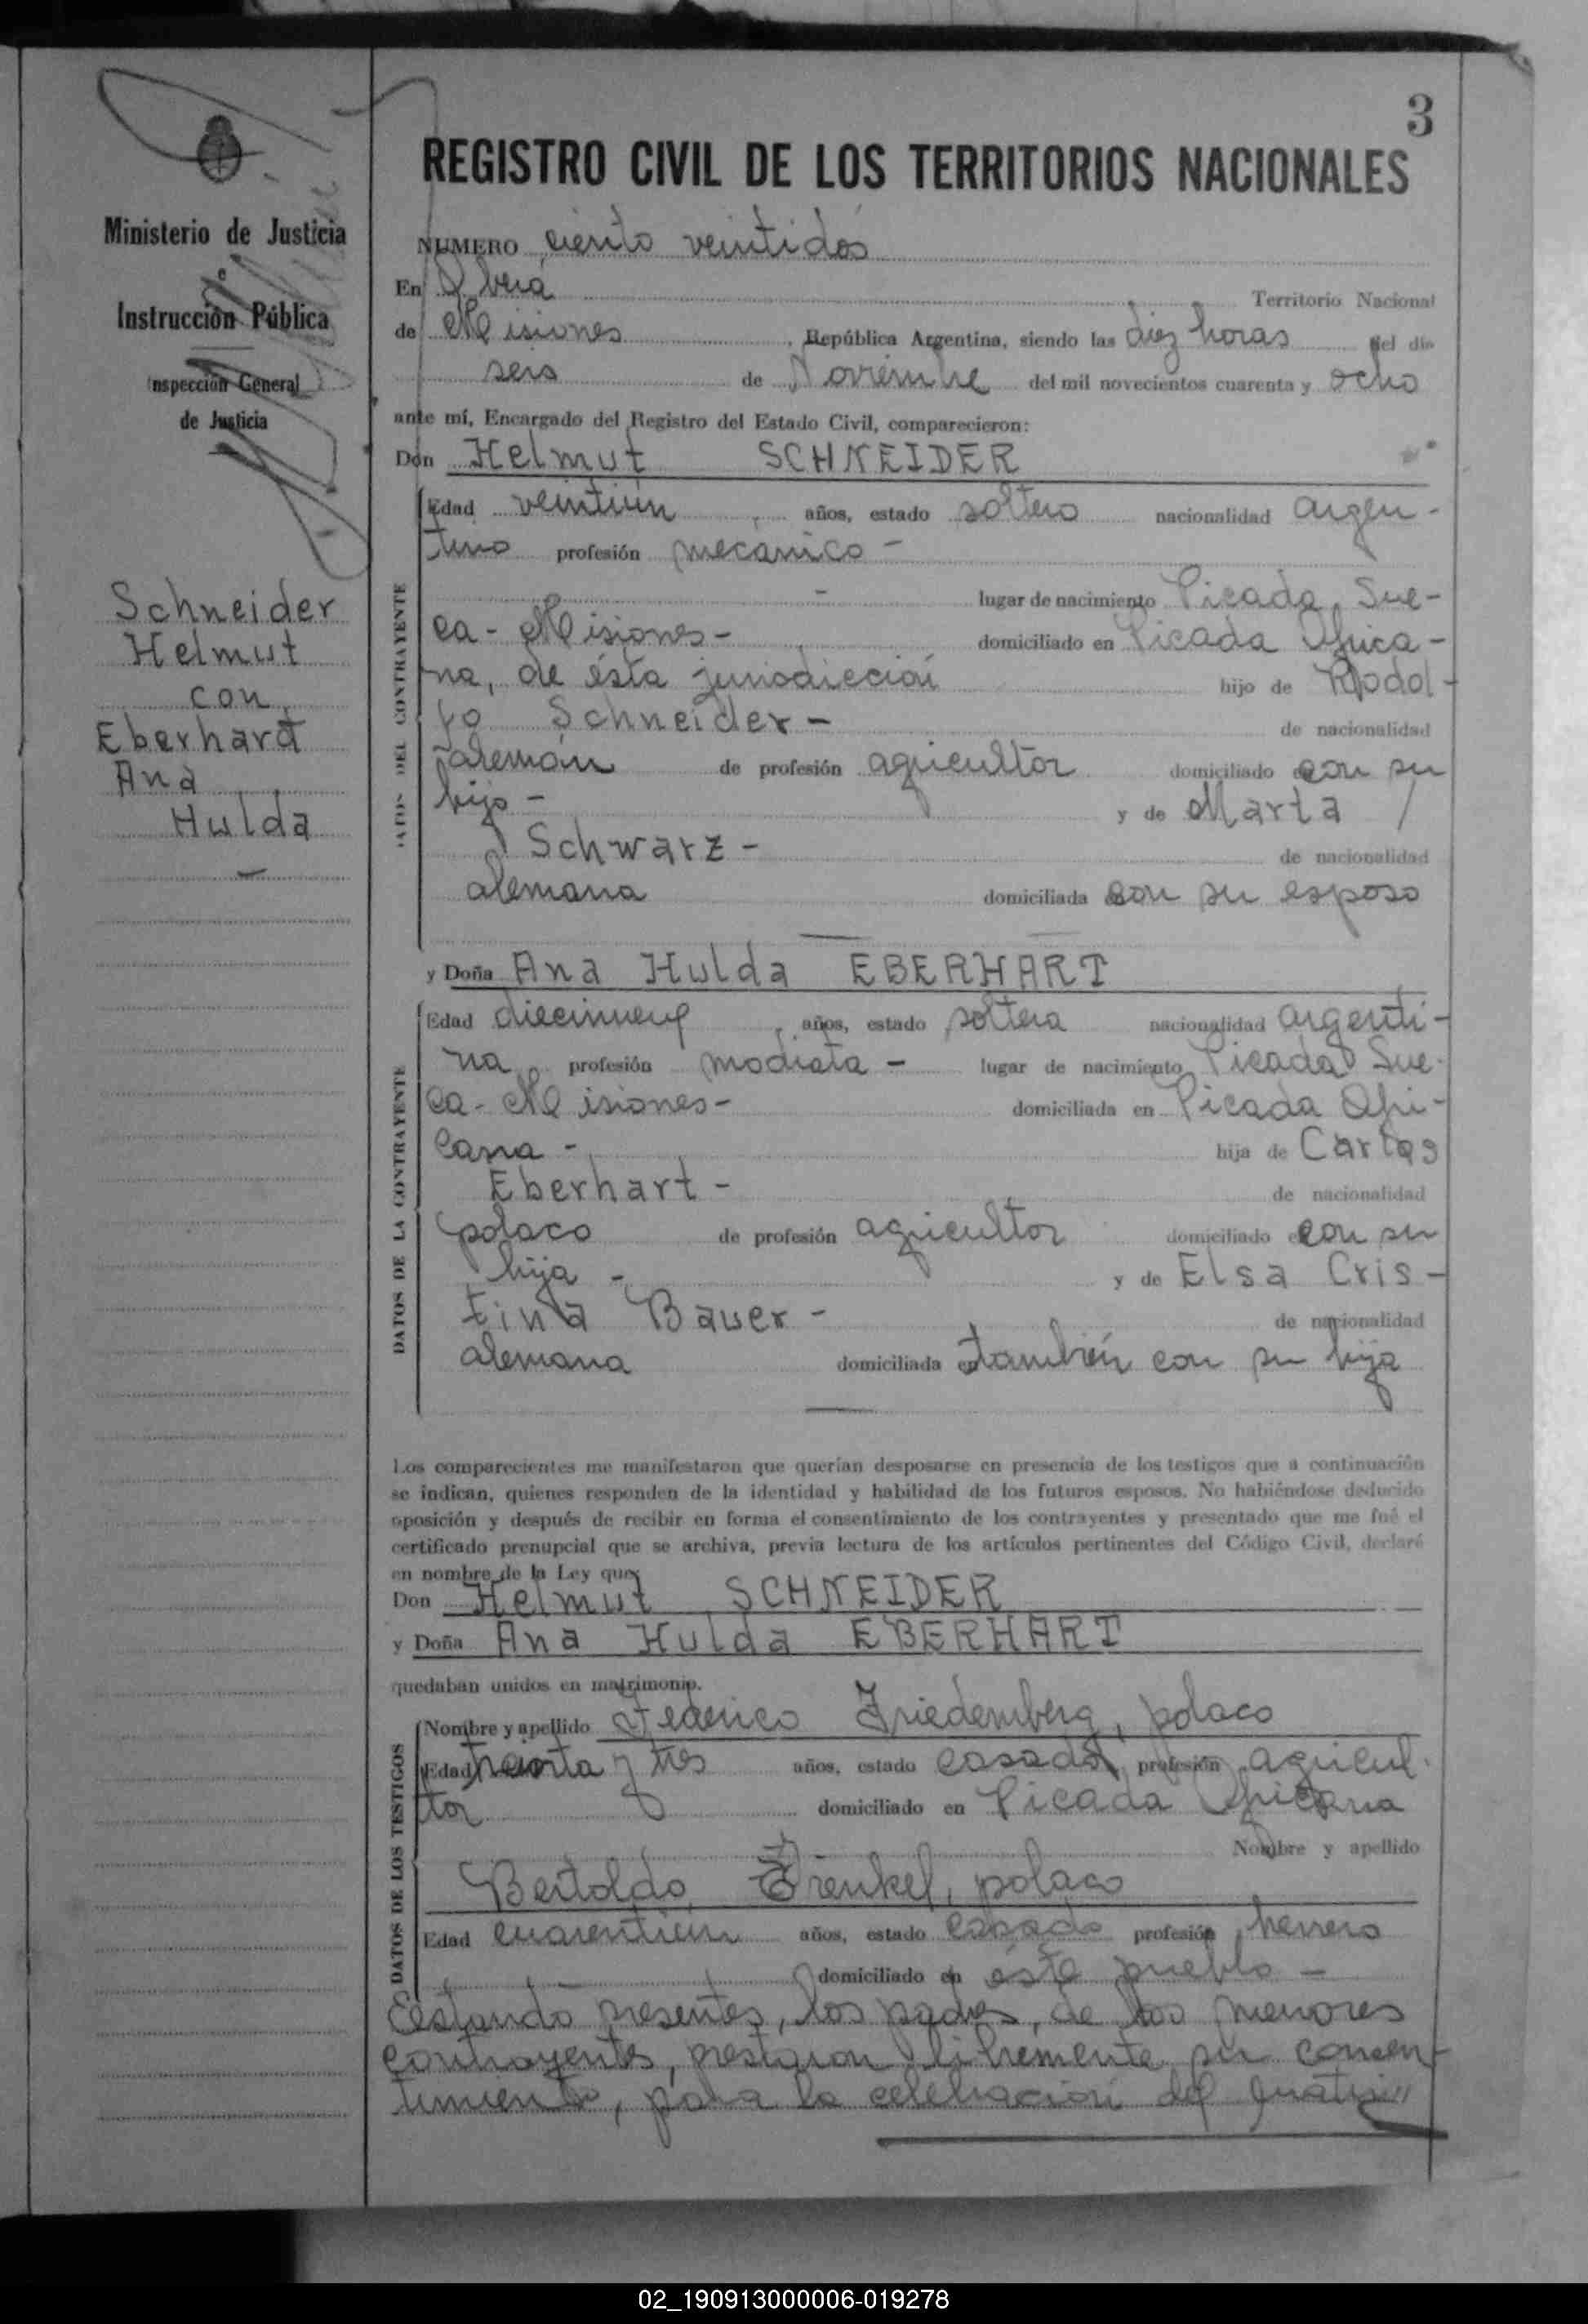 3
REGISTRO CIVIL DE LOS TERRITORIOS NACIONALES
Ministerio de Justicia
e
Instrucción Pública
Inspección General
de Justicia
Schneider
Helmut
con
Eberhart
Ana
Hulda
NUMERO ciento veintidós
En Oberá Territorio Nacional
de Misiones, República Argentina, siendo las diez horas del día
seis de Noviembre del mil novecientos cuarenta y ocho
ante mí, Encargado del Registro del Estado Civil, comparecieron:
Don Helmut SCHNEIDER
DATOS DEL CONTRAYENTE
Edad veintiún años, estado soltero nacionalidad argen-
tino profesión mecánico -
- lugar de nacimiento Picada Sue-
ca - Misiones - domiciliado en Picada Africa-
na, de ésta jurisdicción hijo de Rodol-
fo Schneider - de nacionalidad
alemán de profesión agricultor domiciliado con su
hijo - y de Marta
Schwarz - de nacionalidad
alemana domiciliada con su esposo
y Doña Ana Hulda EBERHART
DATOS DE LA CONTRAYENTE
Edad diecinueve, años, estado soltera nacionalidad argenti-
na, profesión modista - lugar de nacimiento Picada Sue-
ca - Misiones - domiciliada en Picada Afri-
cana - hija de Carlos
Eberhart - de nacionalidad
polaco de profesión agricultor domiciliado con su
hija - y de Elsa Cris-
tina Bauer - de nacionalidad
alemana domiciliada en también con su hija
Los comparecientes me manifestaron que querían desposarse en presencia de los testigos que a continuación
se indican, quienes responden de la identidad y habilidad de los futuros esposos. No habiéndose deducido
oposición y después de recibir en forma el consentimiento de los contrayentes y presentado que me fué el
certificado prenupcial que se archiva, previa lectura de los artículos pertinentes del Código Civil, declaré
en nombre de la Ley que
Don Helmut SCHNEIDER
y Doña Ana Hulda EBERHART
quedaban unidos en matrimonio.
DATOS DE LOS TESTIGOS
Nombre y apellido Federico Friedemberg, polaco
Edad treinta y tres años, estado casado, profesión agricul-
tor domiciliado en Picada Africana
Nombre y apellido
Bertoldo Frenkel, polaco
Edad cuarentiún años, estado casado profesión herrero
- domiciliado en éste pueblo -
Estando presentes, los padres, de los menores
contrayentes, prestaron libremente su consen-
timiento, para la celebración del matri"
02_190913000006-019278